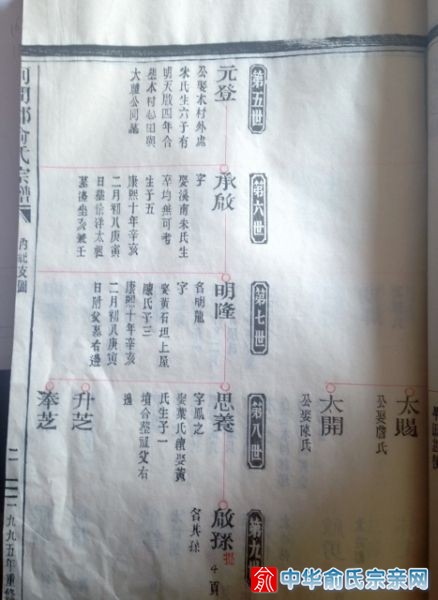 第五世
元登
公娶水村外處
朱氏生六子有
明天啟四年合
大龍公同誌
第六世
承啟
字
娶溪南朱氏生
卒均無可考
生子五
康熙十年辛亥
二月初八庚寅
第七世
明隆
名明龍
字
娶黃石坦上屋
陳氏子三
康熙十年辛亥
二月初八庚寅
日附父墓右邊
第八世
思義
字鳳之
娶葉氏續娶黃
氏生子一
墳合塟祖父右
邊
升芝
奉芝
太賜
公娶詹氏
太開
公娶陳氏
第九世
啟孫
名其孫
俞氏宗譜
內紀支圖
二
一九九五年重修
中华俞氏宗亲网